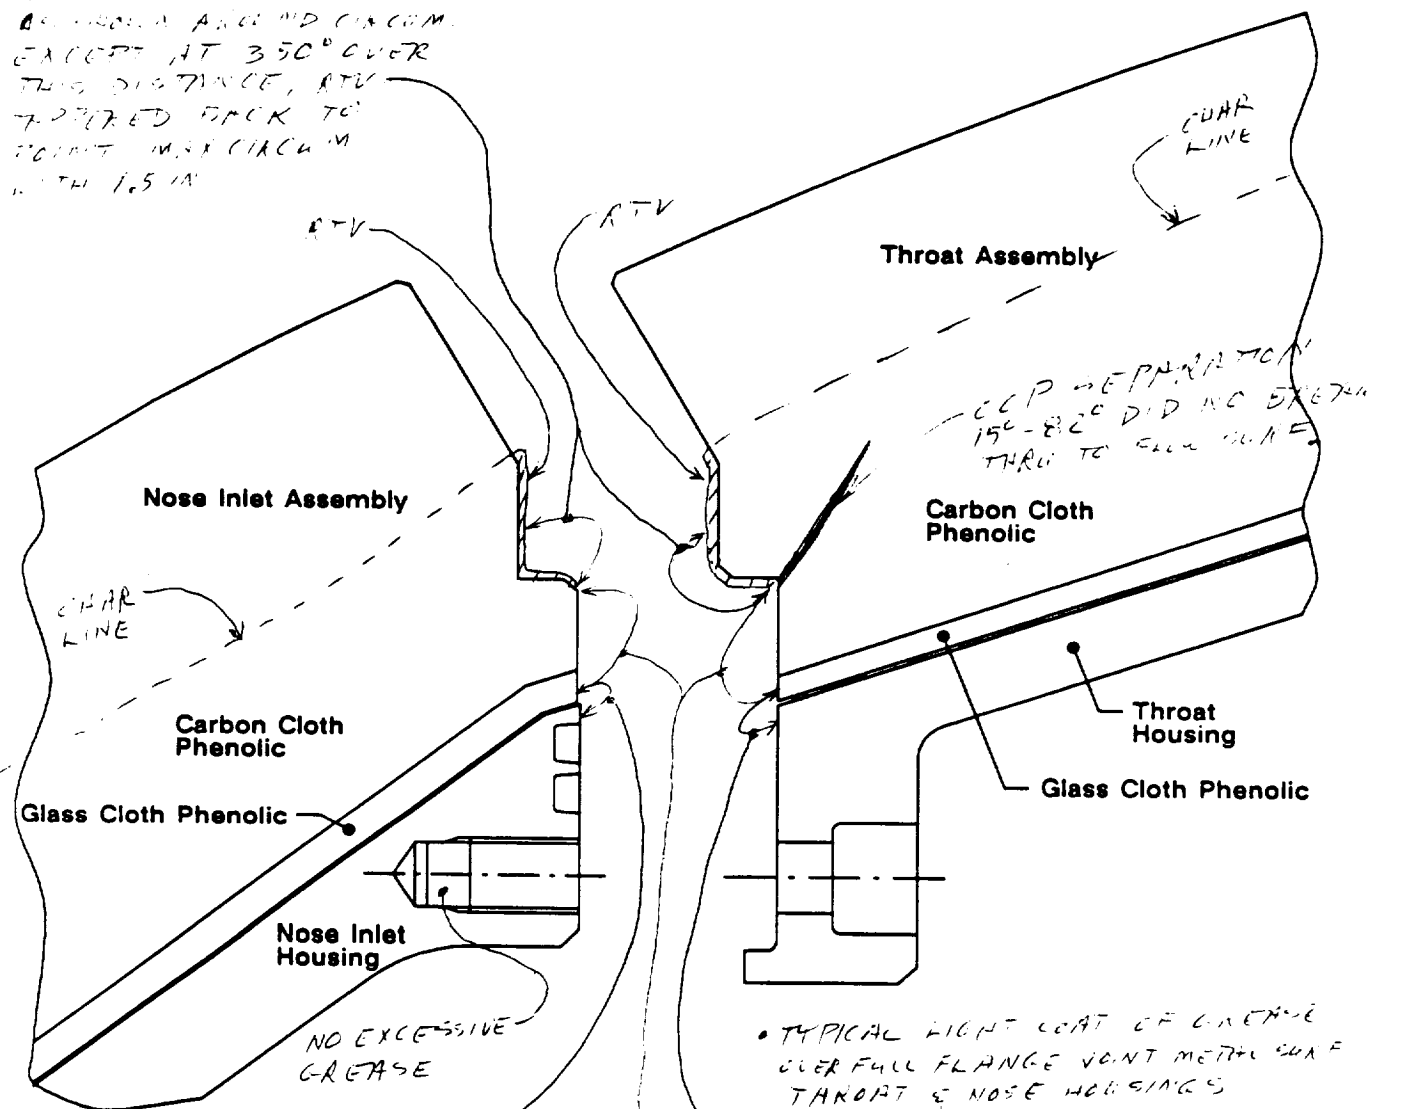 AROUND CIRCUM.
EXCEPT AT 350° OVER
THIS DISTANCE, RTV
BACK TO
POINT MAX CIRCUM
1.5 IN
RTV
RTV
CHAR
LINE
Throat Assembly
CCP SEPARATION
15°-82° DID NO
THRU TO
Nose Inlet Assembly
Carbon Cloth
Phenolic
CHAR
LINE
Carbon Cloth
Phenolic
Throat
Housing
Glass Cloth Phenolic
Glass Cloth Phenolic
Nose Inlet
Housing
NO EXCESSIVE
GREASE
• TYPICAL LIGHT COAT OF GREASE
OVER FULL FLANGE JOINT METAL SURF
THROAT & NOSE HOUSINGS